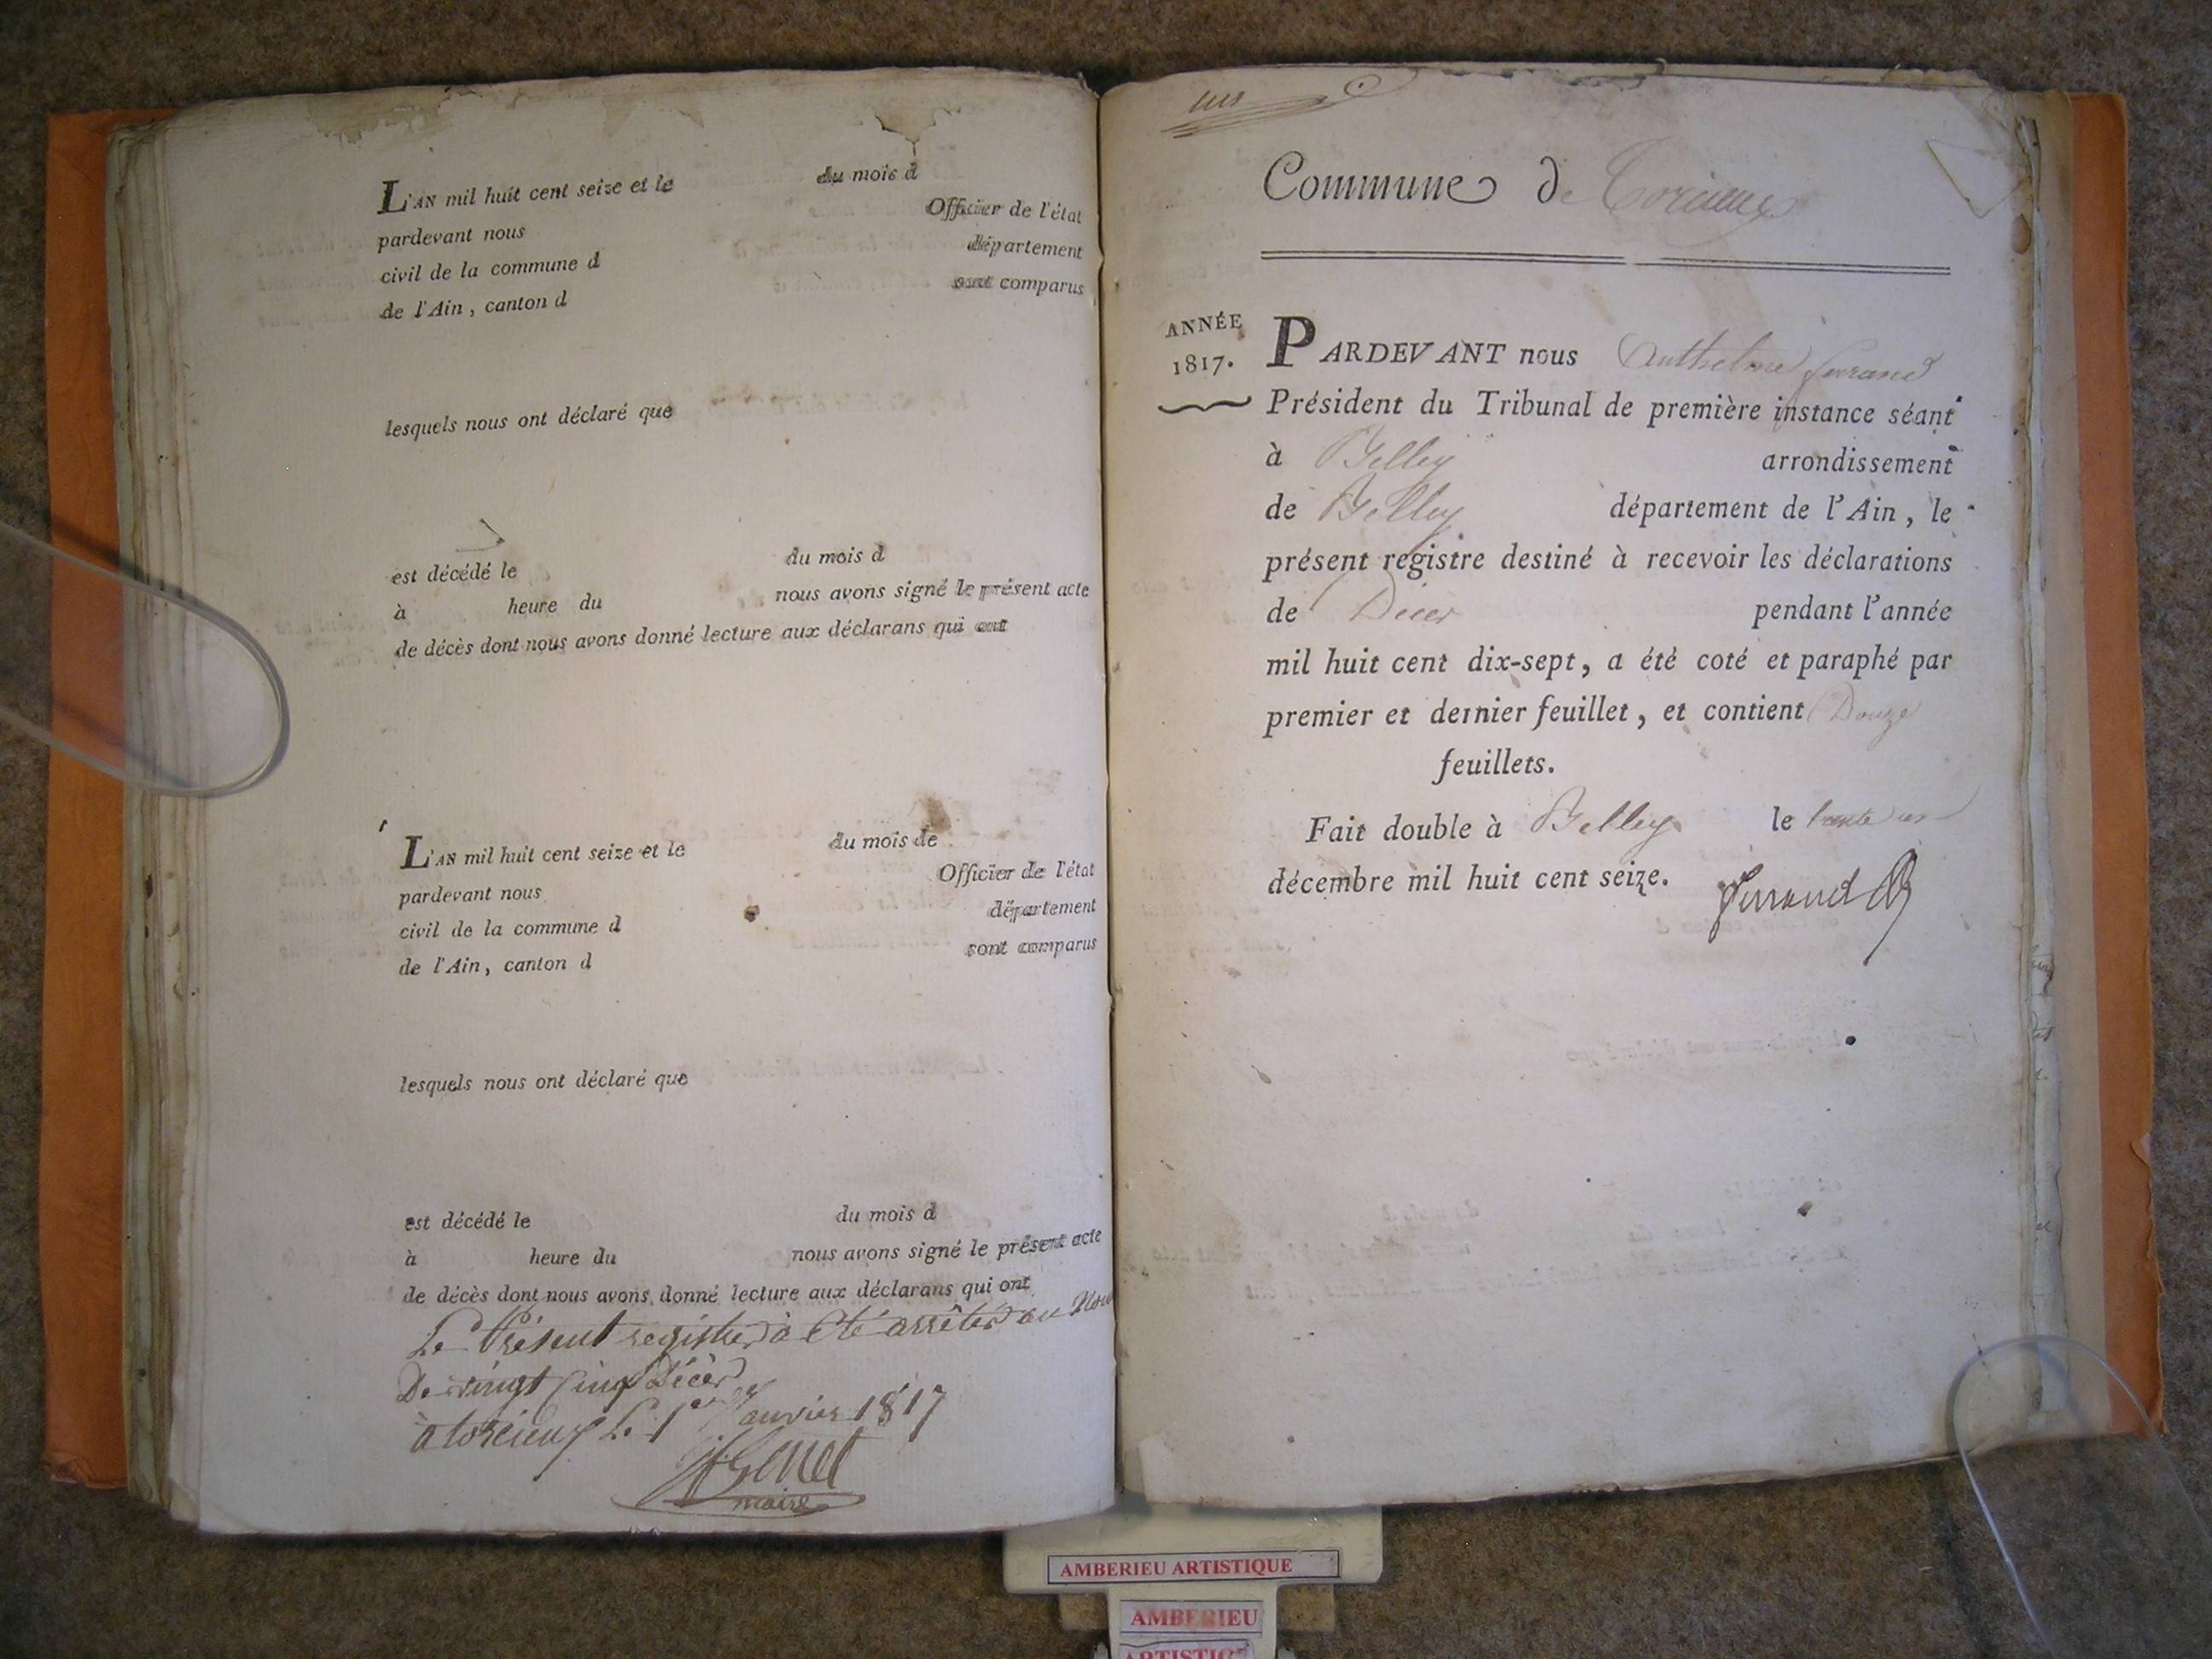 L'AN mil huit cent seize et le du mois d
pardevant nous Officier de l'état
civil de la commune d département
de l'Ain, canton d sont comparus
lesquels nous ont déclaré que
est décédé le du mois d
à heure du nous avons signé le présent acte
de décès dont nous avons donné lecture aux déclarans qui ont
L'AN mil huit cent seize et le du mois de
pardevant nous Officier de l'état
civil de la commune d département
de l'Ain, canton d sont comparus
lesquels nous ont déclaré que
est décédé le du mois d
à heure du nous avons signé le présent acte
de décès dont nous avons donné lecture aux déclarans qui ont
Le Présent registre à été arrêté au Nom
De vingt cinq Décès
à torcieux Le 1er Janvier 1817
Genet
maire
Commune de Torcieux
ANNÉE
1817.
PARDEVANT nous Anthelme ferrand
Président du Tribunal de première instance séant
à Belley arrondissement
de Belley département de l'Ain, le
présent registre destiné à recevoir les déclarations
de Décès pendant l'année
mil huit cent dix-sept, a été coté et paraphé par
premier et dernier feuillet, et contient Douze
feuillets.
Fait double à Belley le trente un
décembre mil huit cent seize.
ferrand
AMBERIEU ARTISTIQUE
AMBERIEU
ARTISTIQ